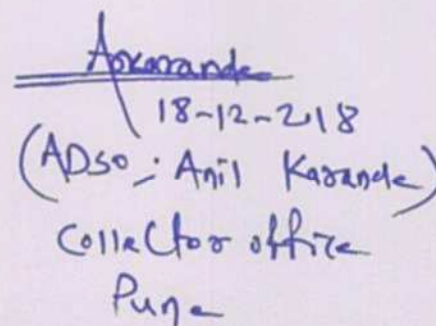 Askarande
18-12-218
(ADSO: Anil Karande)
Collector office
Pune